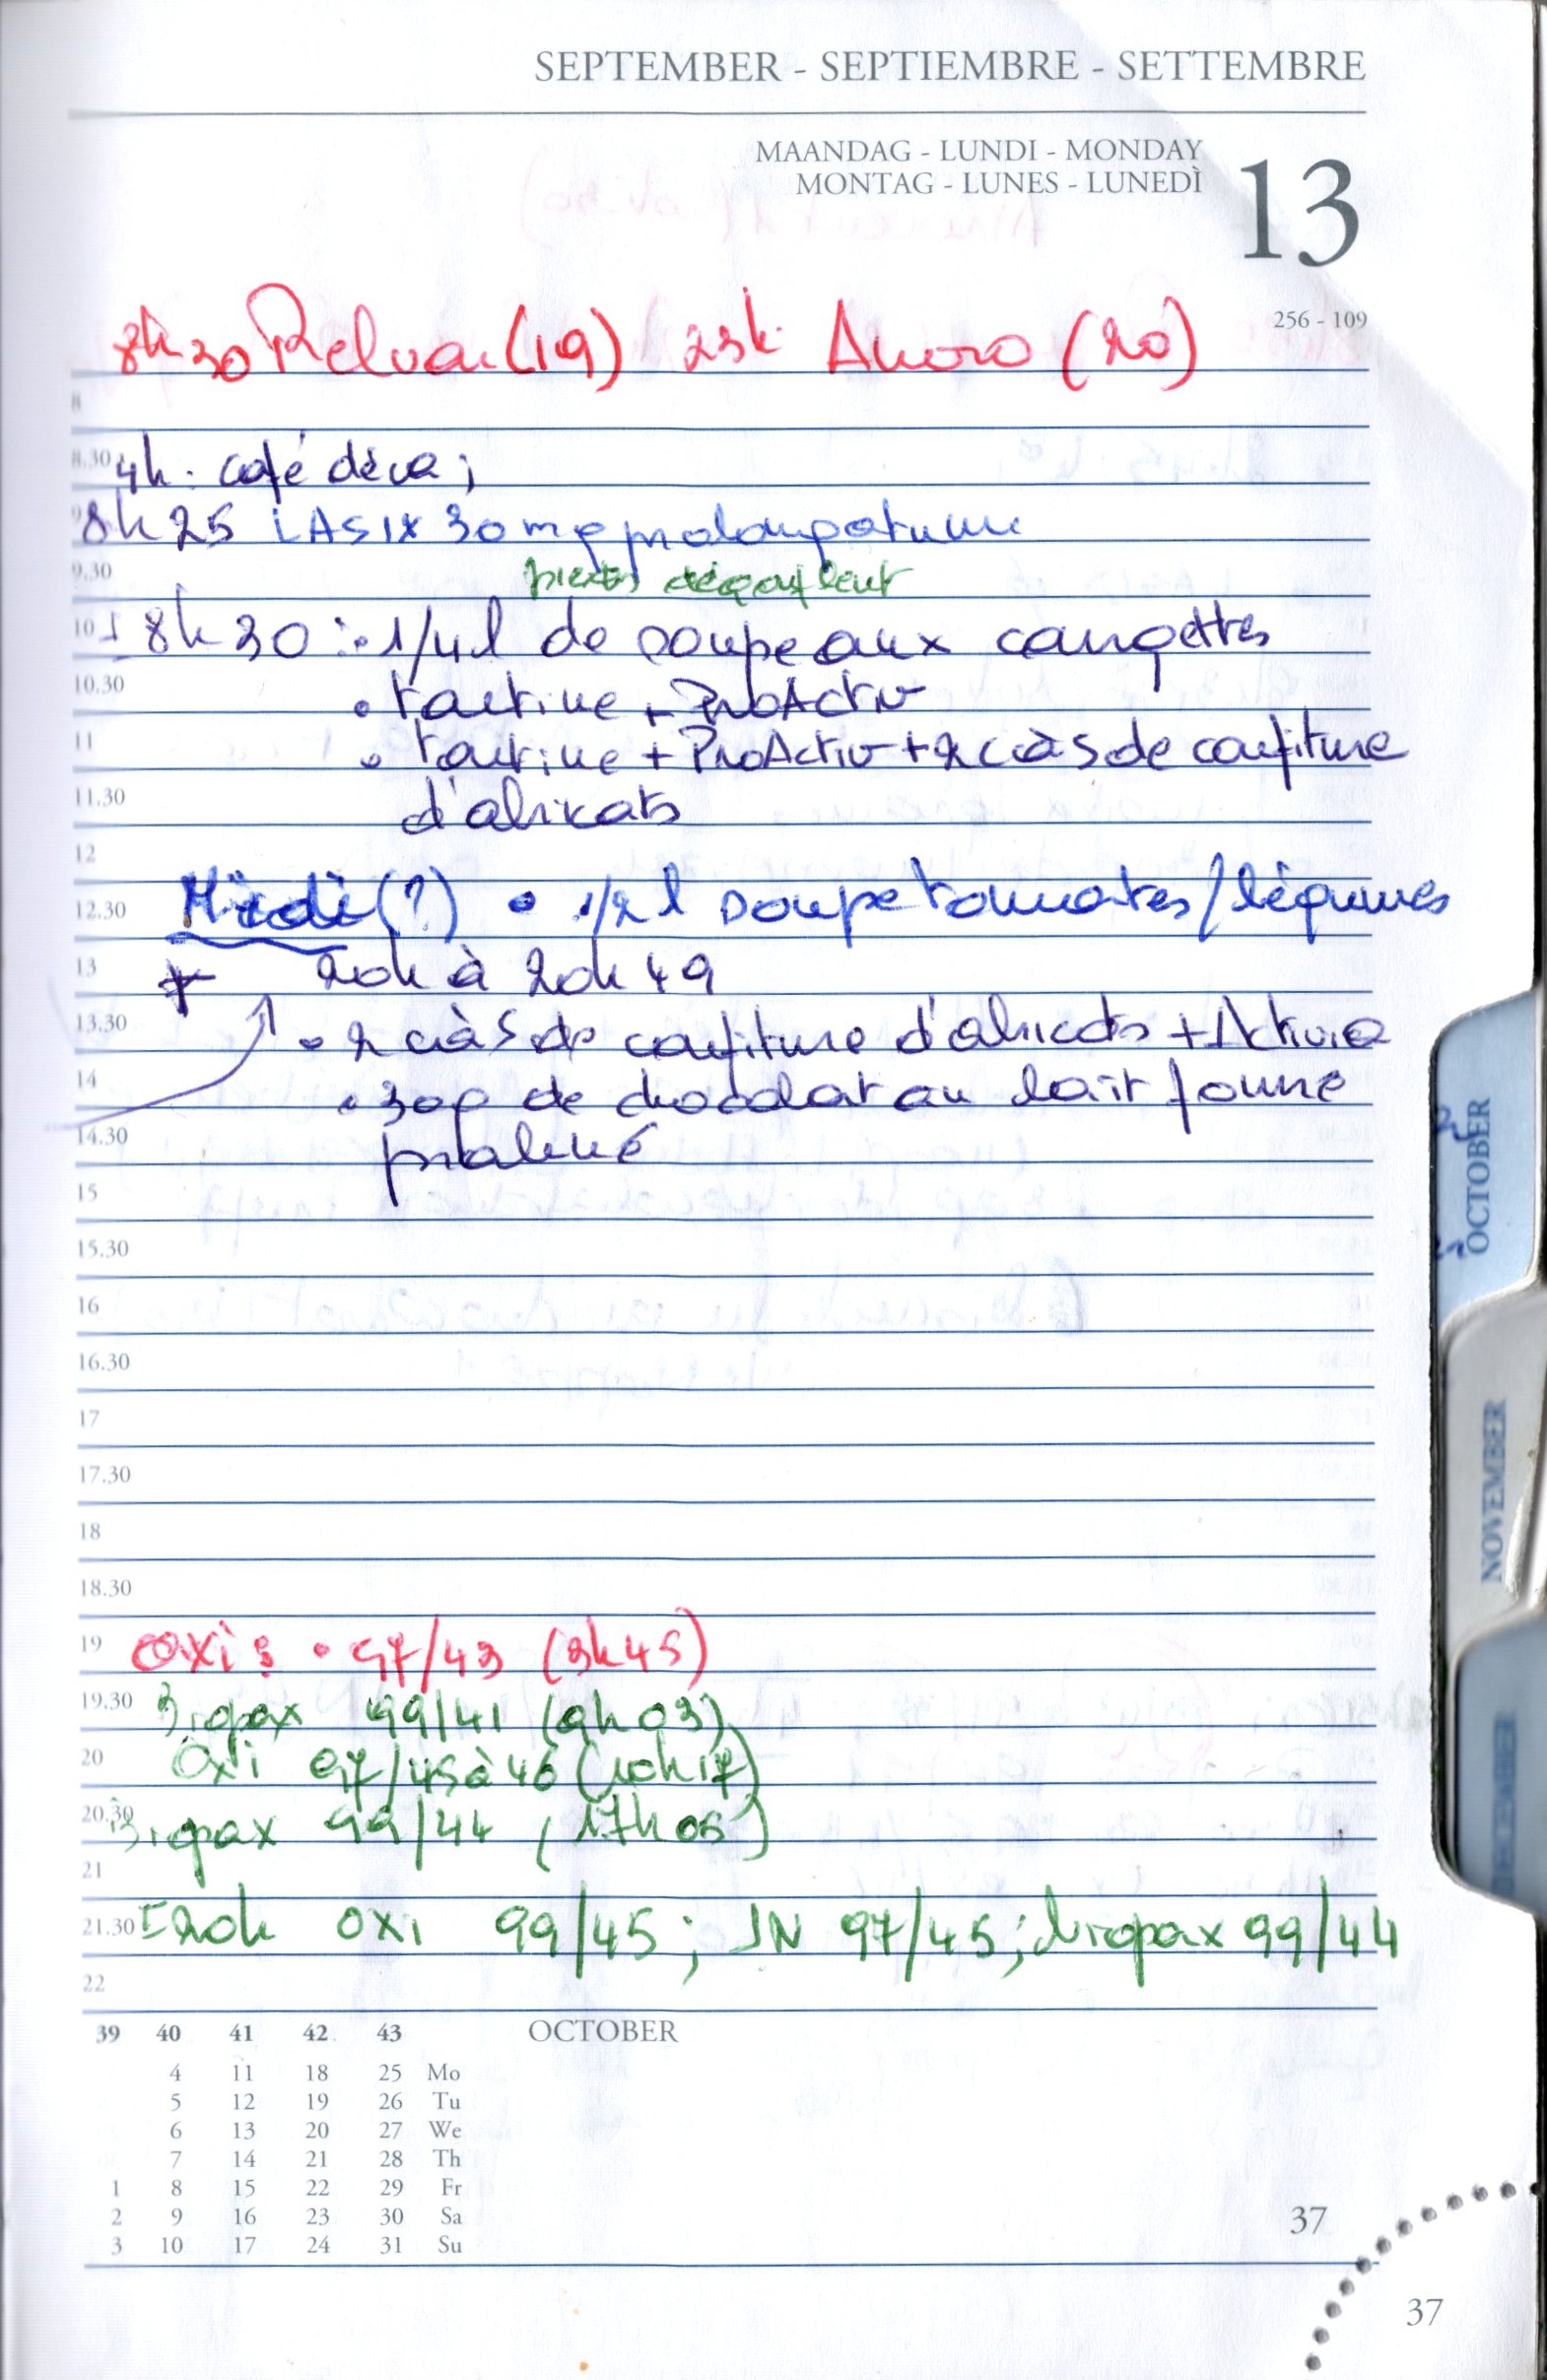 SEPTEMBER - SEPTIEMBRE - SETTEMBRE
MAANDAG - LUNDI - MONDAY
MONTAG - LUNES - LUNEDÌ
13
256 - 109
8h30 Relvar (19) 23h Anoro (20)
8
8.30 4h : café déca ;
9 8h25 LASIX 30 mg prolongatum
9.30 pieds dégonflent
10 8h30 : • 1/4 l de soupe aux courgettes
10.30 • tartine + ProActiv
11 • tartine + ProActiv + 2 c à s de confiture
11.30 d'abricots
12
12.30 Midi (?) • 1/2 l soupe tomates/légumes
13 20h à 20h49
13.30 • 2 c à s de confiture d'abricots + Activia
14 • 30g de chocolat au lait fourré
14.30 praliné
15
15.30
16
16.30
17
17.30
18
18.30
19 oxi : • 97/43 (3h45)
19.30 Biopax 99/41 (9h03)
20 Oxi 97/45 à 46 (10h17)
20.30 Biopax 99/44 (17h05)
21
21.30 ± 20h oxi 99/45 ; JN 97/45 ; biopax 99/44
22
39 40 41 42 43 OCTOBER
4 11 18 25 Mo
5 12 19 26 Tu
6 13 20 27 We
7 14 21 28 Th
1 8 15 22 29 Fr
2 9 16 23 30 Sa
3 10 17 24 31 Su
37
37
OCTOBER
NOVEMBER
DECEMBER